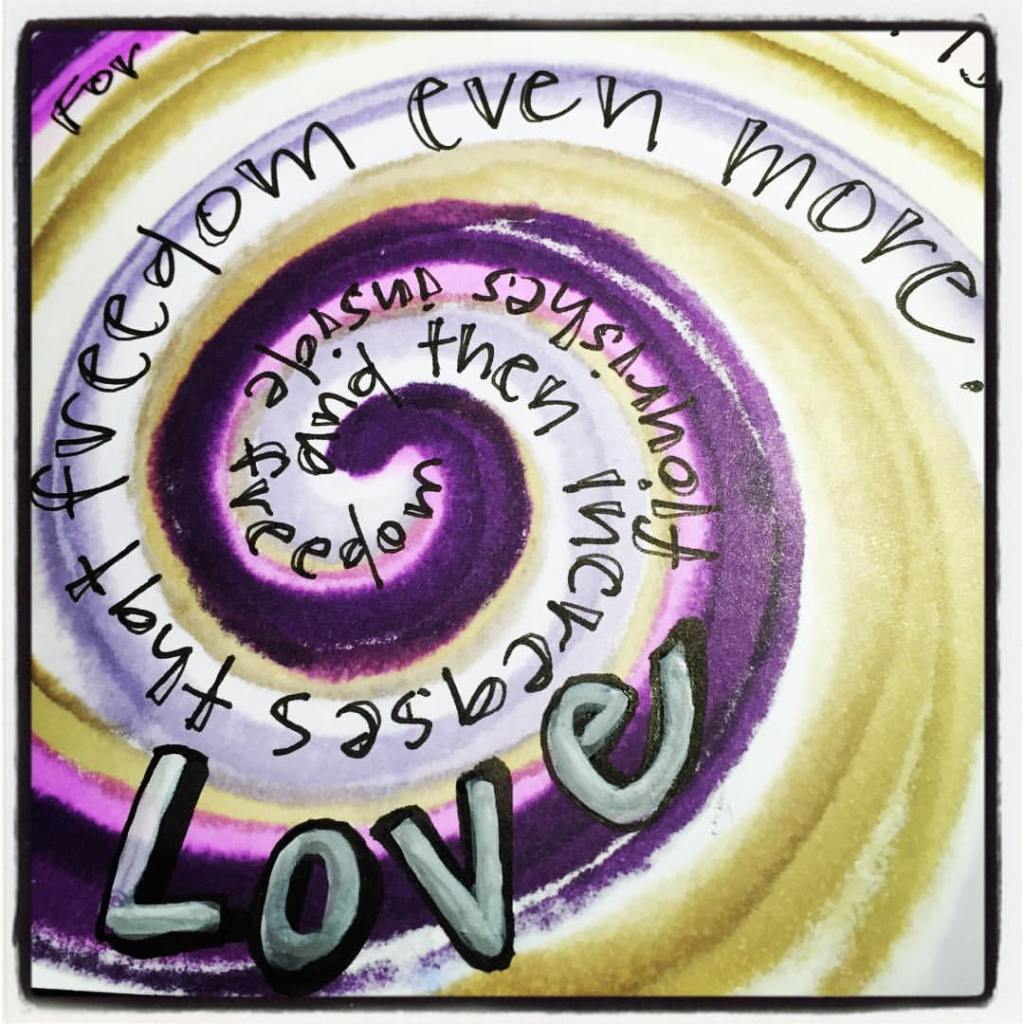 For
Love
flourishes inside
freedom
and then increases that freedom even more.